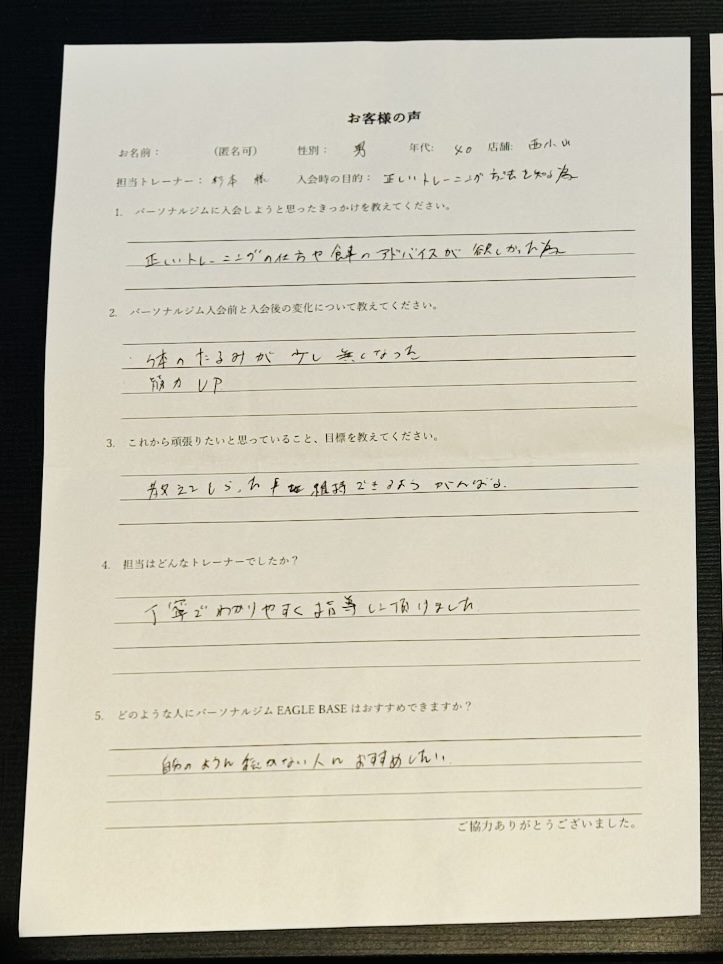 お客様の声
お名前： （匿名可） 性別： 男 年代: 40 店舗: 西小山
担当トレーナー： 杉本 様 入会時の目的： 正しいトレーニング方法を知る為
1. パーソナルジムに入会しようと思ったきっかけを教えてください。
正しいトレーニングの仕方や食事のアドバイスが欲しかった為
2. パーソナルジム入会前と入会後の変化について教えてください。
体のたるみが少し無くなった
筋力UP
3. これから頑張りたいと思っていること、目標を教えてください。
教えてもらった事 維持できるようがんばる.
4. 担当はどんなトレーナーでしたか？
丁寧でわかりやすく指導して頂けました
5. どのような人にパーソナルジム EAGLE BASE はおすすめできますか？
自分のような 人に おすすめしたい.
ご協力ありがとうございました。